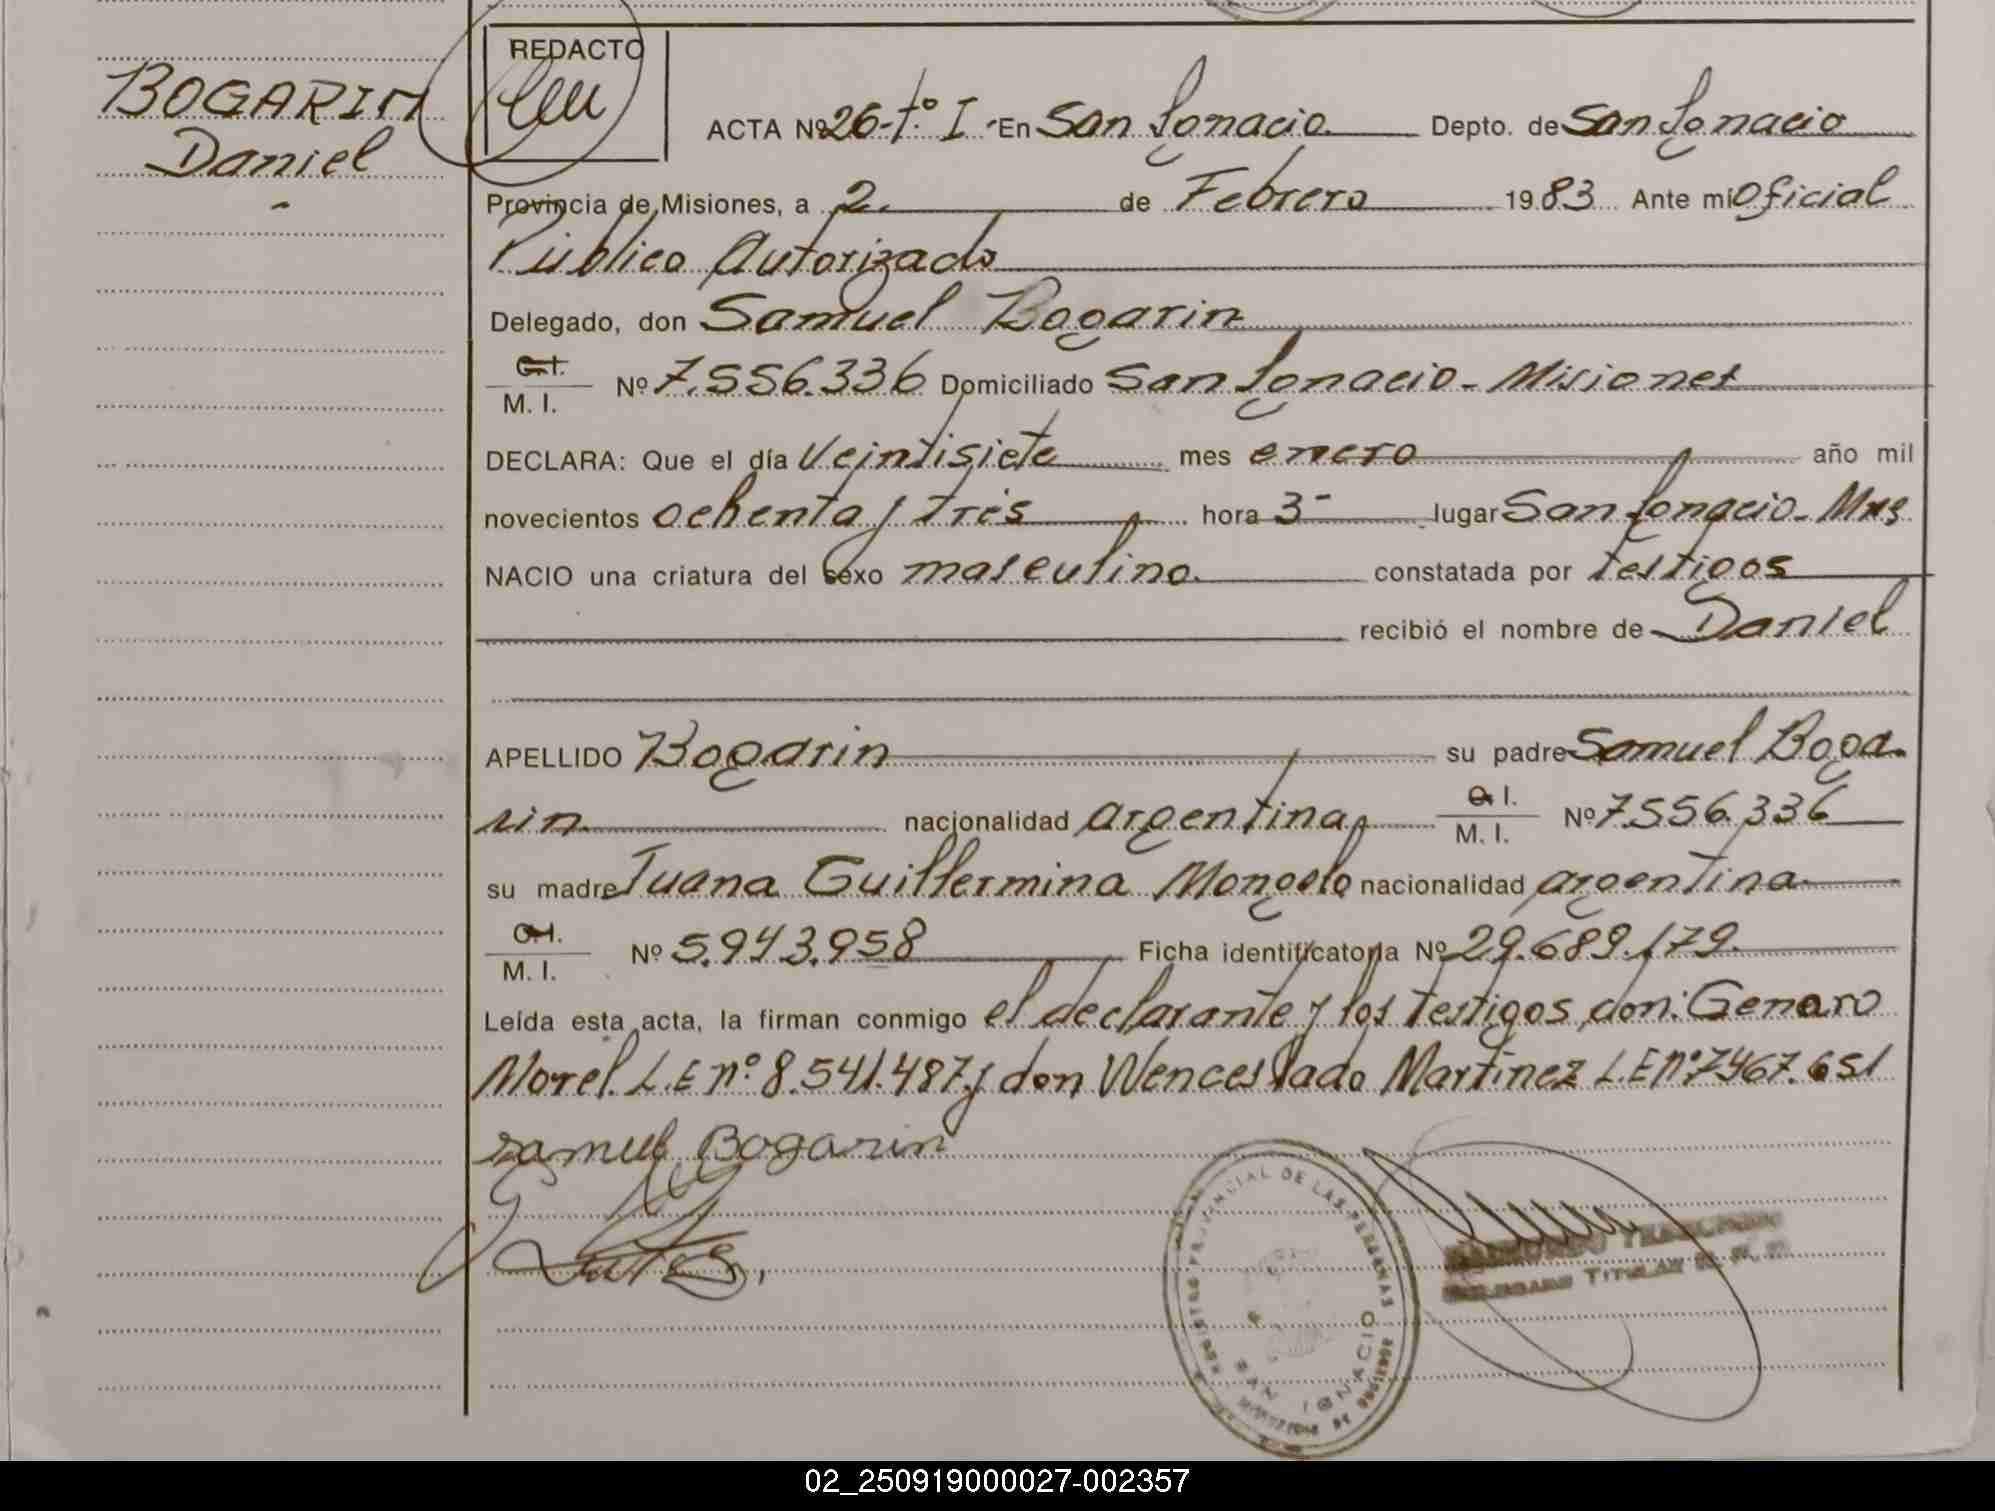 BOGARIN
Daniel
REDACTO
ACTA Nº 26-tº I - En San Ignacio Depto. de San Ignacio
Provincia de Misiones, a 2. de Febrero 1983 Ante mi Oficial
Público Autorizado
Delegado, don Samuel Bogarin
C.I.
M. I. Nº 7.556.336 Domiciliado San Ignacio - Misiones
DECLARA: Que el día Veintisiete mes enero año mil
novecientos ochenta y tres hora 3- lugar San Ignacio - Mnes
NACIO una criatura del sexo masculino. constatada por testigos
recibió el nombre de Daniel
APELLIDO Bogarin su padre Samuel Boga-
rin nacionalidad argentina C.I.
M. I. Nº 7.556.336
su madre Juana Guillermina Mongelo nacionalidad argentina
C.I.
M. I. Nº 5.943.958 Ficha identificatoria Nº 29.689.179.
Leída esta acta, la firman conmigo el declarante y los testigos, don: Genaro
Morel. L.E nº 8.541.487 y don Wenceslado Martinez L.E nº 7467.651
Samuel Bogarin
REGISTRO PROVINCIAL DE LAS PERSONAS
SAN IGNACIO
DELEGADO TITULAR R. P. P.
02_250919000027-002357